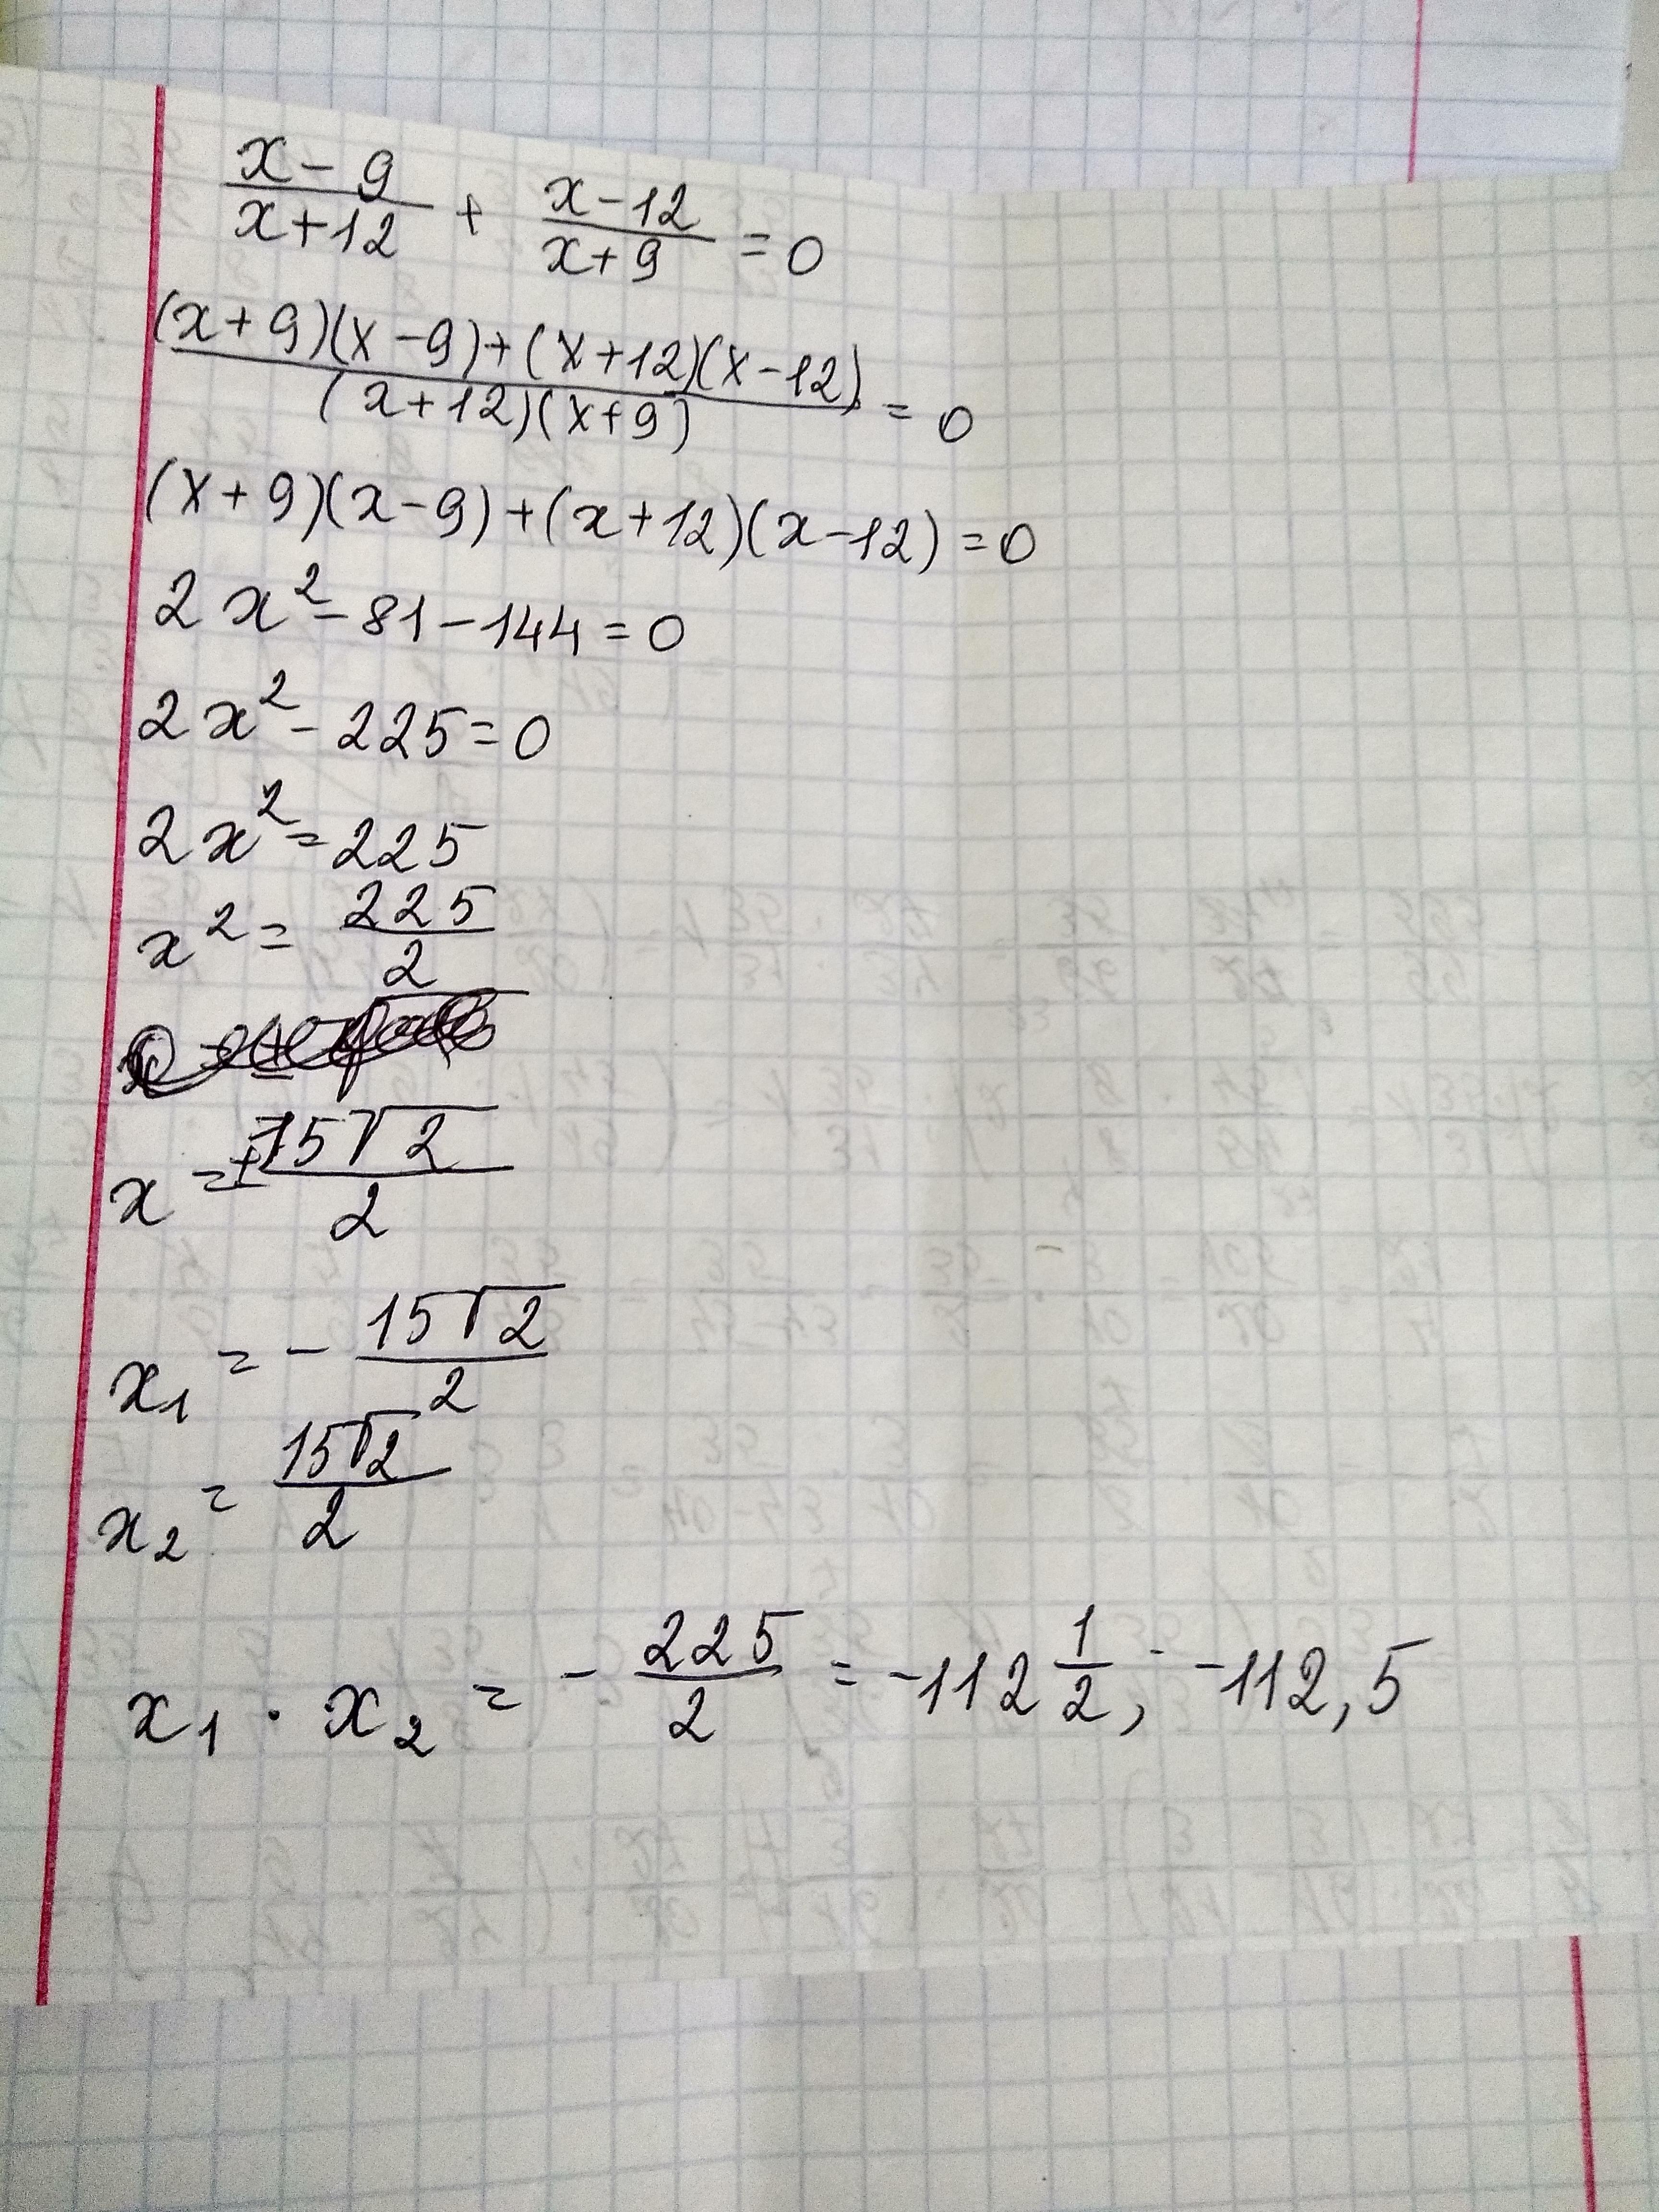 (x-9)/(x+12) + (x-12)/(x+9) = 0
((x+9)(x-9)+(x+12)(x-12))/((x+12)(x+9)) = 0
(x+9)(x-9)+(x+12)(x-12)=0
2x²-81-144=0
2x²-225=0
2x²=225
x²=225/2
x=±15√2/2
x₁=-15√2/2
x₂=15√2/2
x₁·x₂=-225/2=-112 1/2; -112,5